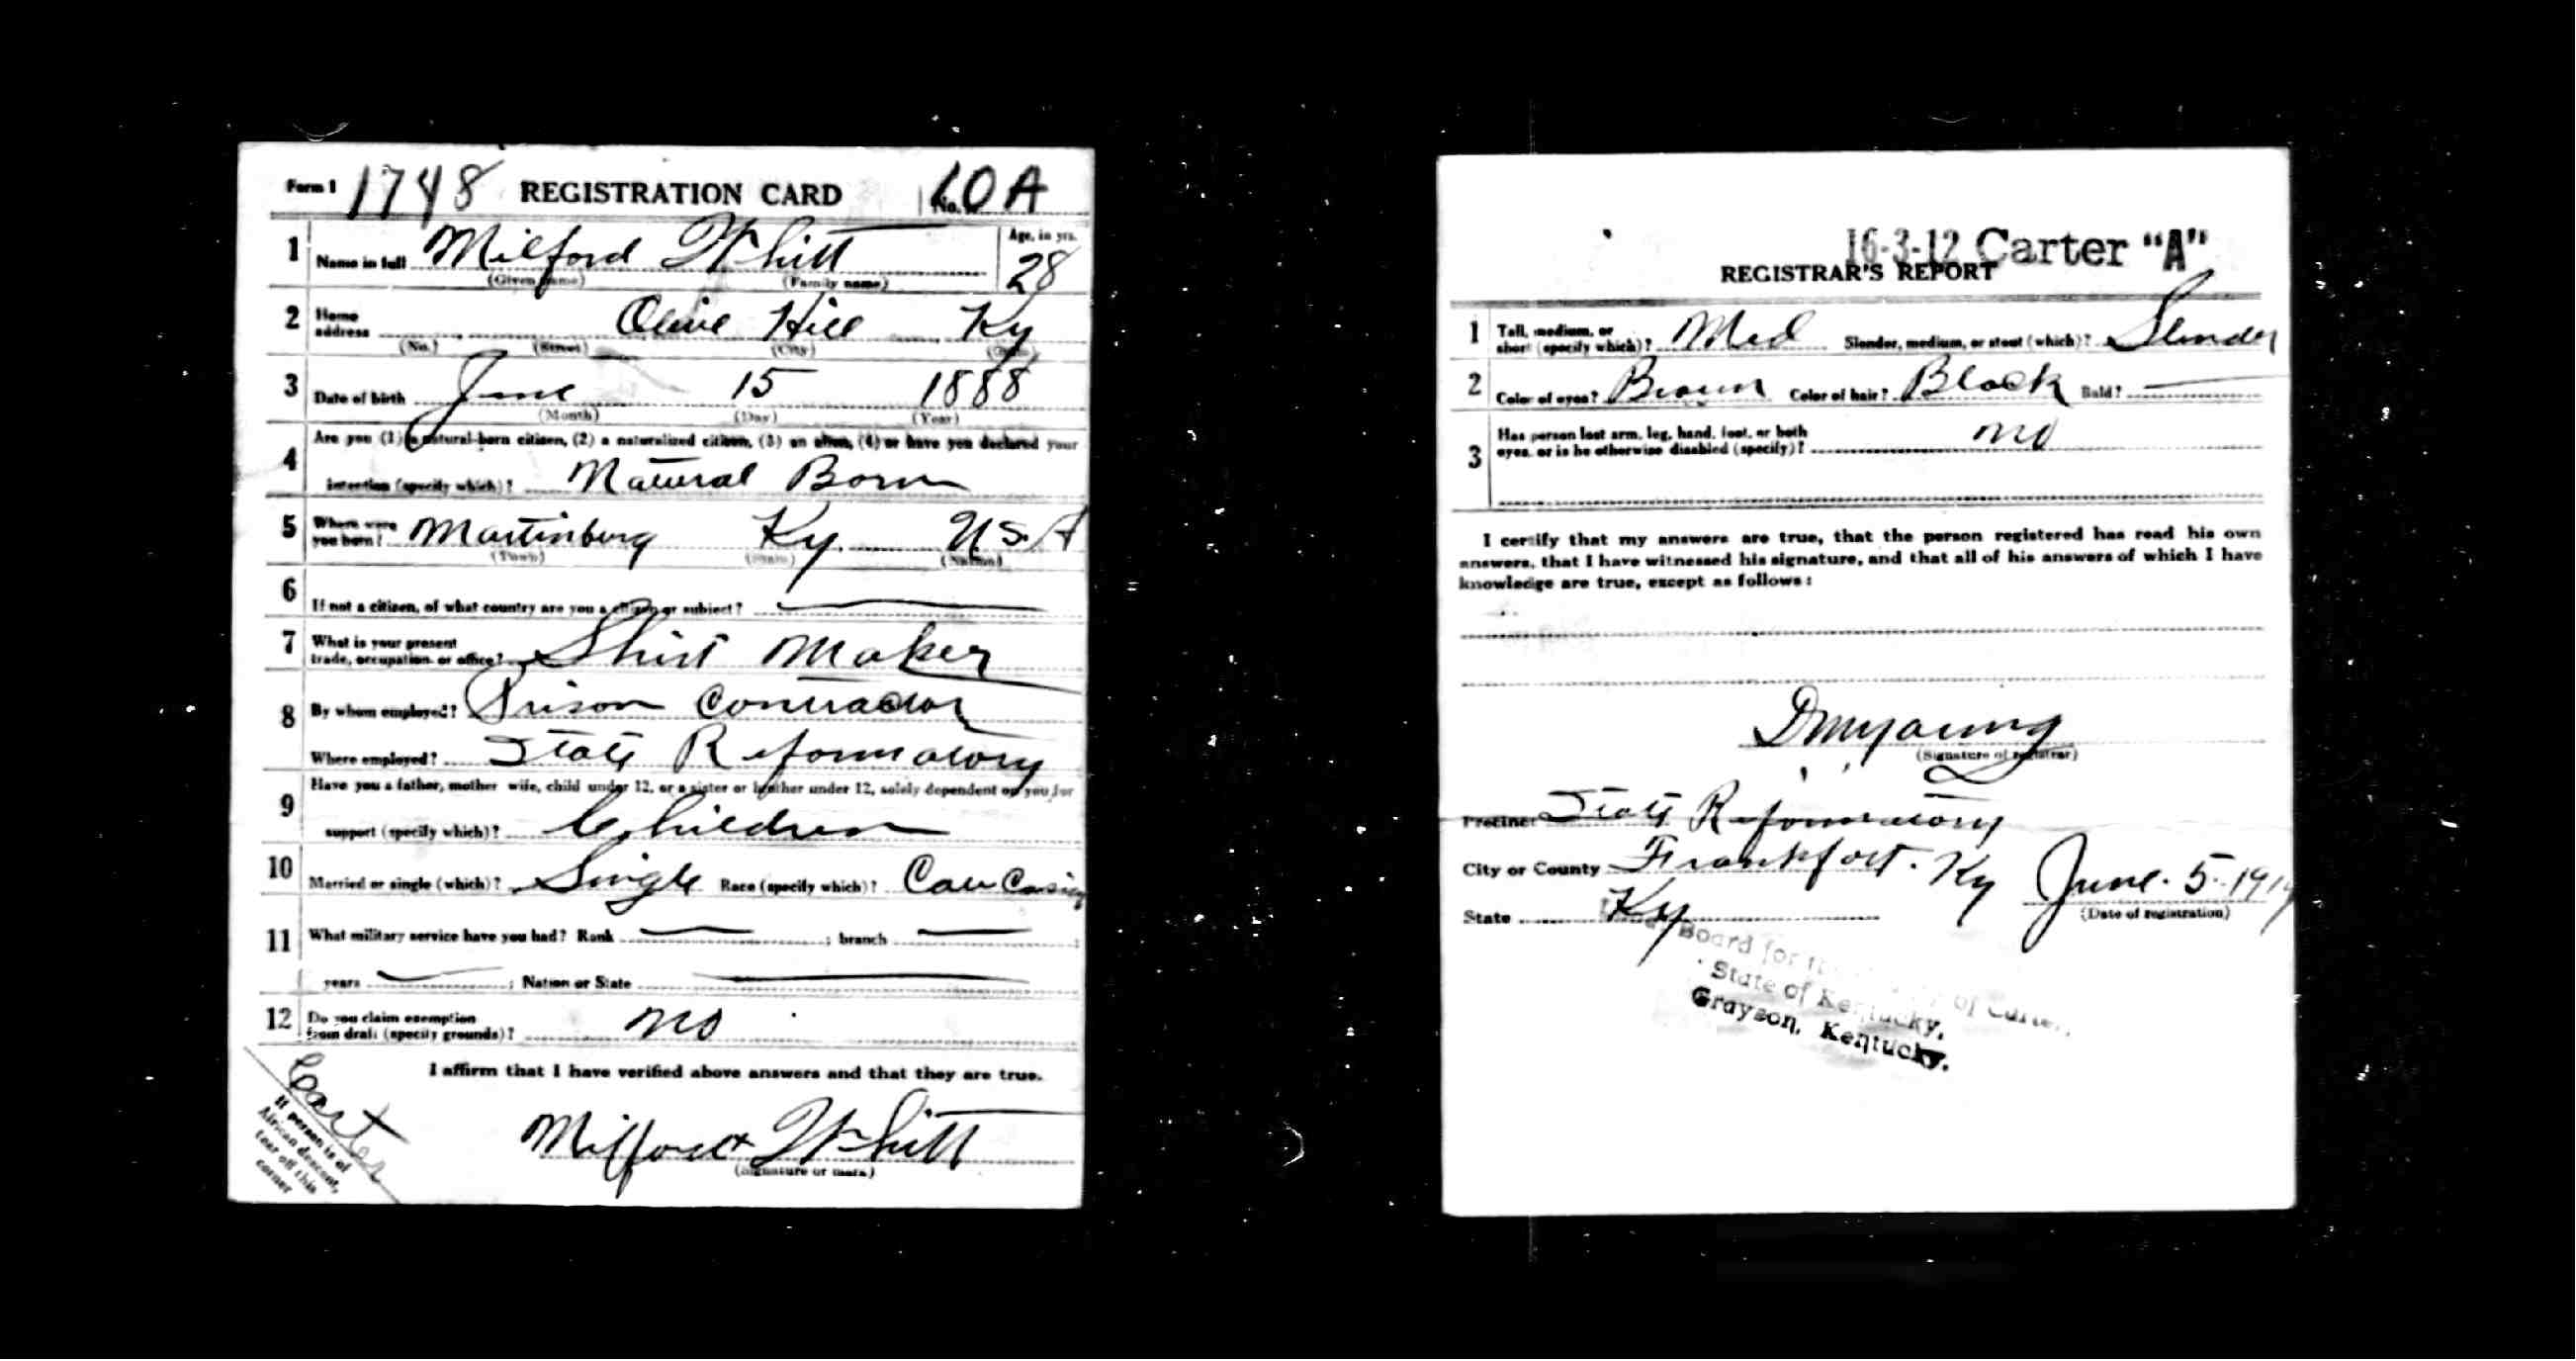 Form 1 1748 REGISTRATION CARD No. 60 A
1 Name in full Milford Whitt Age, in yrs. 28
(Given name) (Family name)
2 Home address Olive Hill Ky
(No.) (Street) (City) (State)
3 Date of birth June 15 1888
(Month) (Day) (Year)
4 Are you (1) a natural-born citizen, (2) a naturalized citizen, (3) an alien, (4) or have you declared your
intention (specify which)? Natural Born
5 Where were you born? Martinburg Ky. U.S.A
(Town) (State) (Nation)
6 If not a citizen, of what country are you a citizen or subject?
7 What is your present
trade, occupation, or office? Shirt Maker
8 By whom employed? Prison Contractor
Where employed? State Reformatory
9 Have you a father, mother wife, child under 12, or a sister or brother under 12, solely dependent on you for
support (specify which)? Children
10 Married or single (which)? Single Race (specify which)?
11 What military service have you had? Rank ; branch ;
years ; Nation or State
12 Do you claim exemption
from draft (specify grounds)? no
I affirm that I have verified above answers and that they are true.
Milford Whitt
(Signature or mark)
Carter
If person is of
African descent,
tear off this
corner
16-3-12 Carter "A"
REGISTRAR'S REPORT
1 Tall, medium, or
short (specify which)? Med Slender, medium, or stout (which)? Slender
2 Color of eyes? Brown Color of hair? Black Bald?
3 Has person lost arm, leg, hand, foot, or both
eyes, or is he otherwise disabled (specify)? no
I certify that my answers are true, that the person registered has read his own
answers, that I have witnessed his signature, and that all of his answers of which I have
knowledge are true, except as follows:
DMYoung
(Signature of registrar)
Precinct State Reformatory
City or County Frankfort. Ky June. 5. 1917
State Ky (Date of registration)
Board for of Carter,
State of Kentucky,
Grayson, Kentucky.